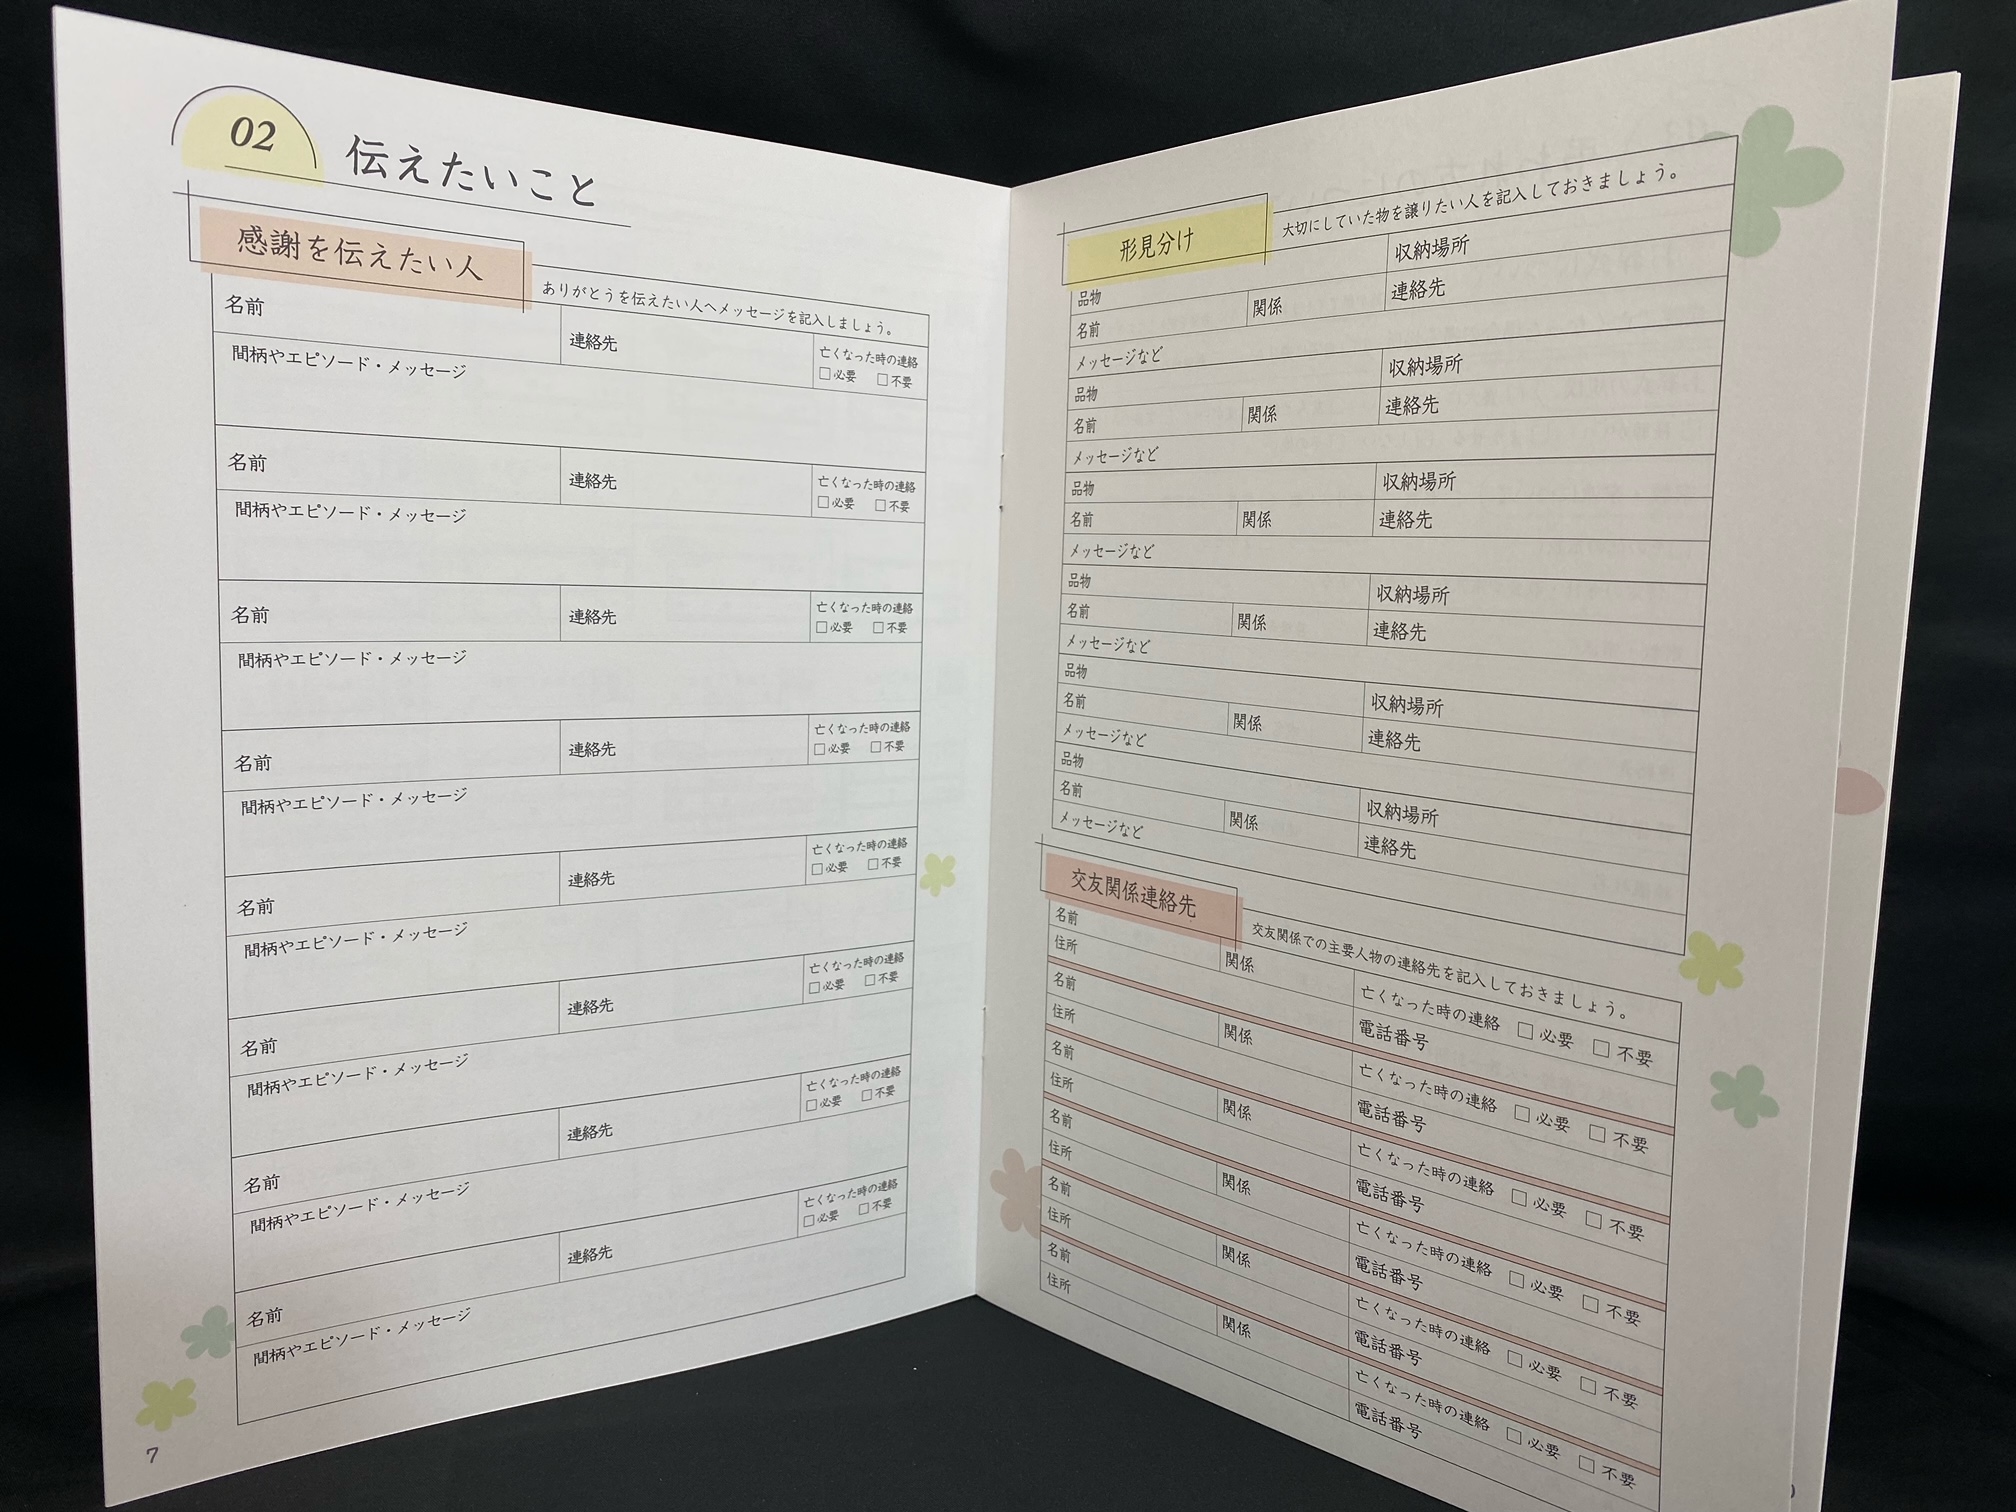 02 伝えたいこと
感謝を伝えたい人
ありがとうを伝えたい人へメッセージを記入しましょう。
名前 連絡先 亡くなった時の連絡
□必要 □不要
間柄やエピソード・メッセージ
名前 連絡先 亡くなった時の連絡
□必要 □不要
間柄やエピソード・メッセージ
名前 連絡先 亡くなった時の連絡
□必要 □不要
間柄やエピソード・メッセージ
名前 連絡先 亡くなった時の連絡
□必要 □不要
間柄やエピソード・メッセージ
名前 連絡先 亡くなった時の連絡
□必要 □不要
間柄やエピソード・メッセージ
名前 連絡先 亡くなった時の連絡
□必要 □不要
間柄やエピソード・メッセージ
名前 連絡先 亡くなった時の連絡
□必要 □不要
間柄やエピソード・メッセージ
名前 連絡先 亡くなった時の連絡
□必要 □不要
間柄やエピソード・メッセージ
7
形見分け
大切にしていた物を譲りたい人を記入しておきましょう。
品物 収納場所
名前 関係 連絡先
メッセージなど
品物 収納場所
名前 関係 連絡先
メッセージなど
品物 収納場所
名前 関係 連絡先
メッセージなど
品物 収納場所
名前 関係 連絡先
メッセージなど
品物 収納場所
名前 関係 連絡先
メッセージなど
品物 収納場所
名前 関係 連絡先
メッセージなど
交友関係連絡先
交友関係での主要人物の連絡先を記入しておきましょう。
名前 関係 亡くなった時の連絡 □ 必要 □ 不要
住所 電話番号
名前 関係 亡くなった時の連絡 □ 必要 □ 不要
住所 電話番号
名前 関係 亡くなった時の連絡 □ 必要 □ 不要
住所 電話番号
名前 関係 亡くなった時の連絡 □ 必要 □ 不要
住所 電話番号
名前 関係 亡くなった時の連絡 □ 必要 □ 不要
住所 電話番号
名前 関係 亡くなった時の連絡 □ 必要 □ 不要
住所 電話番号